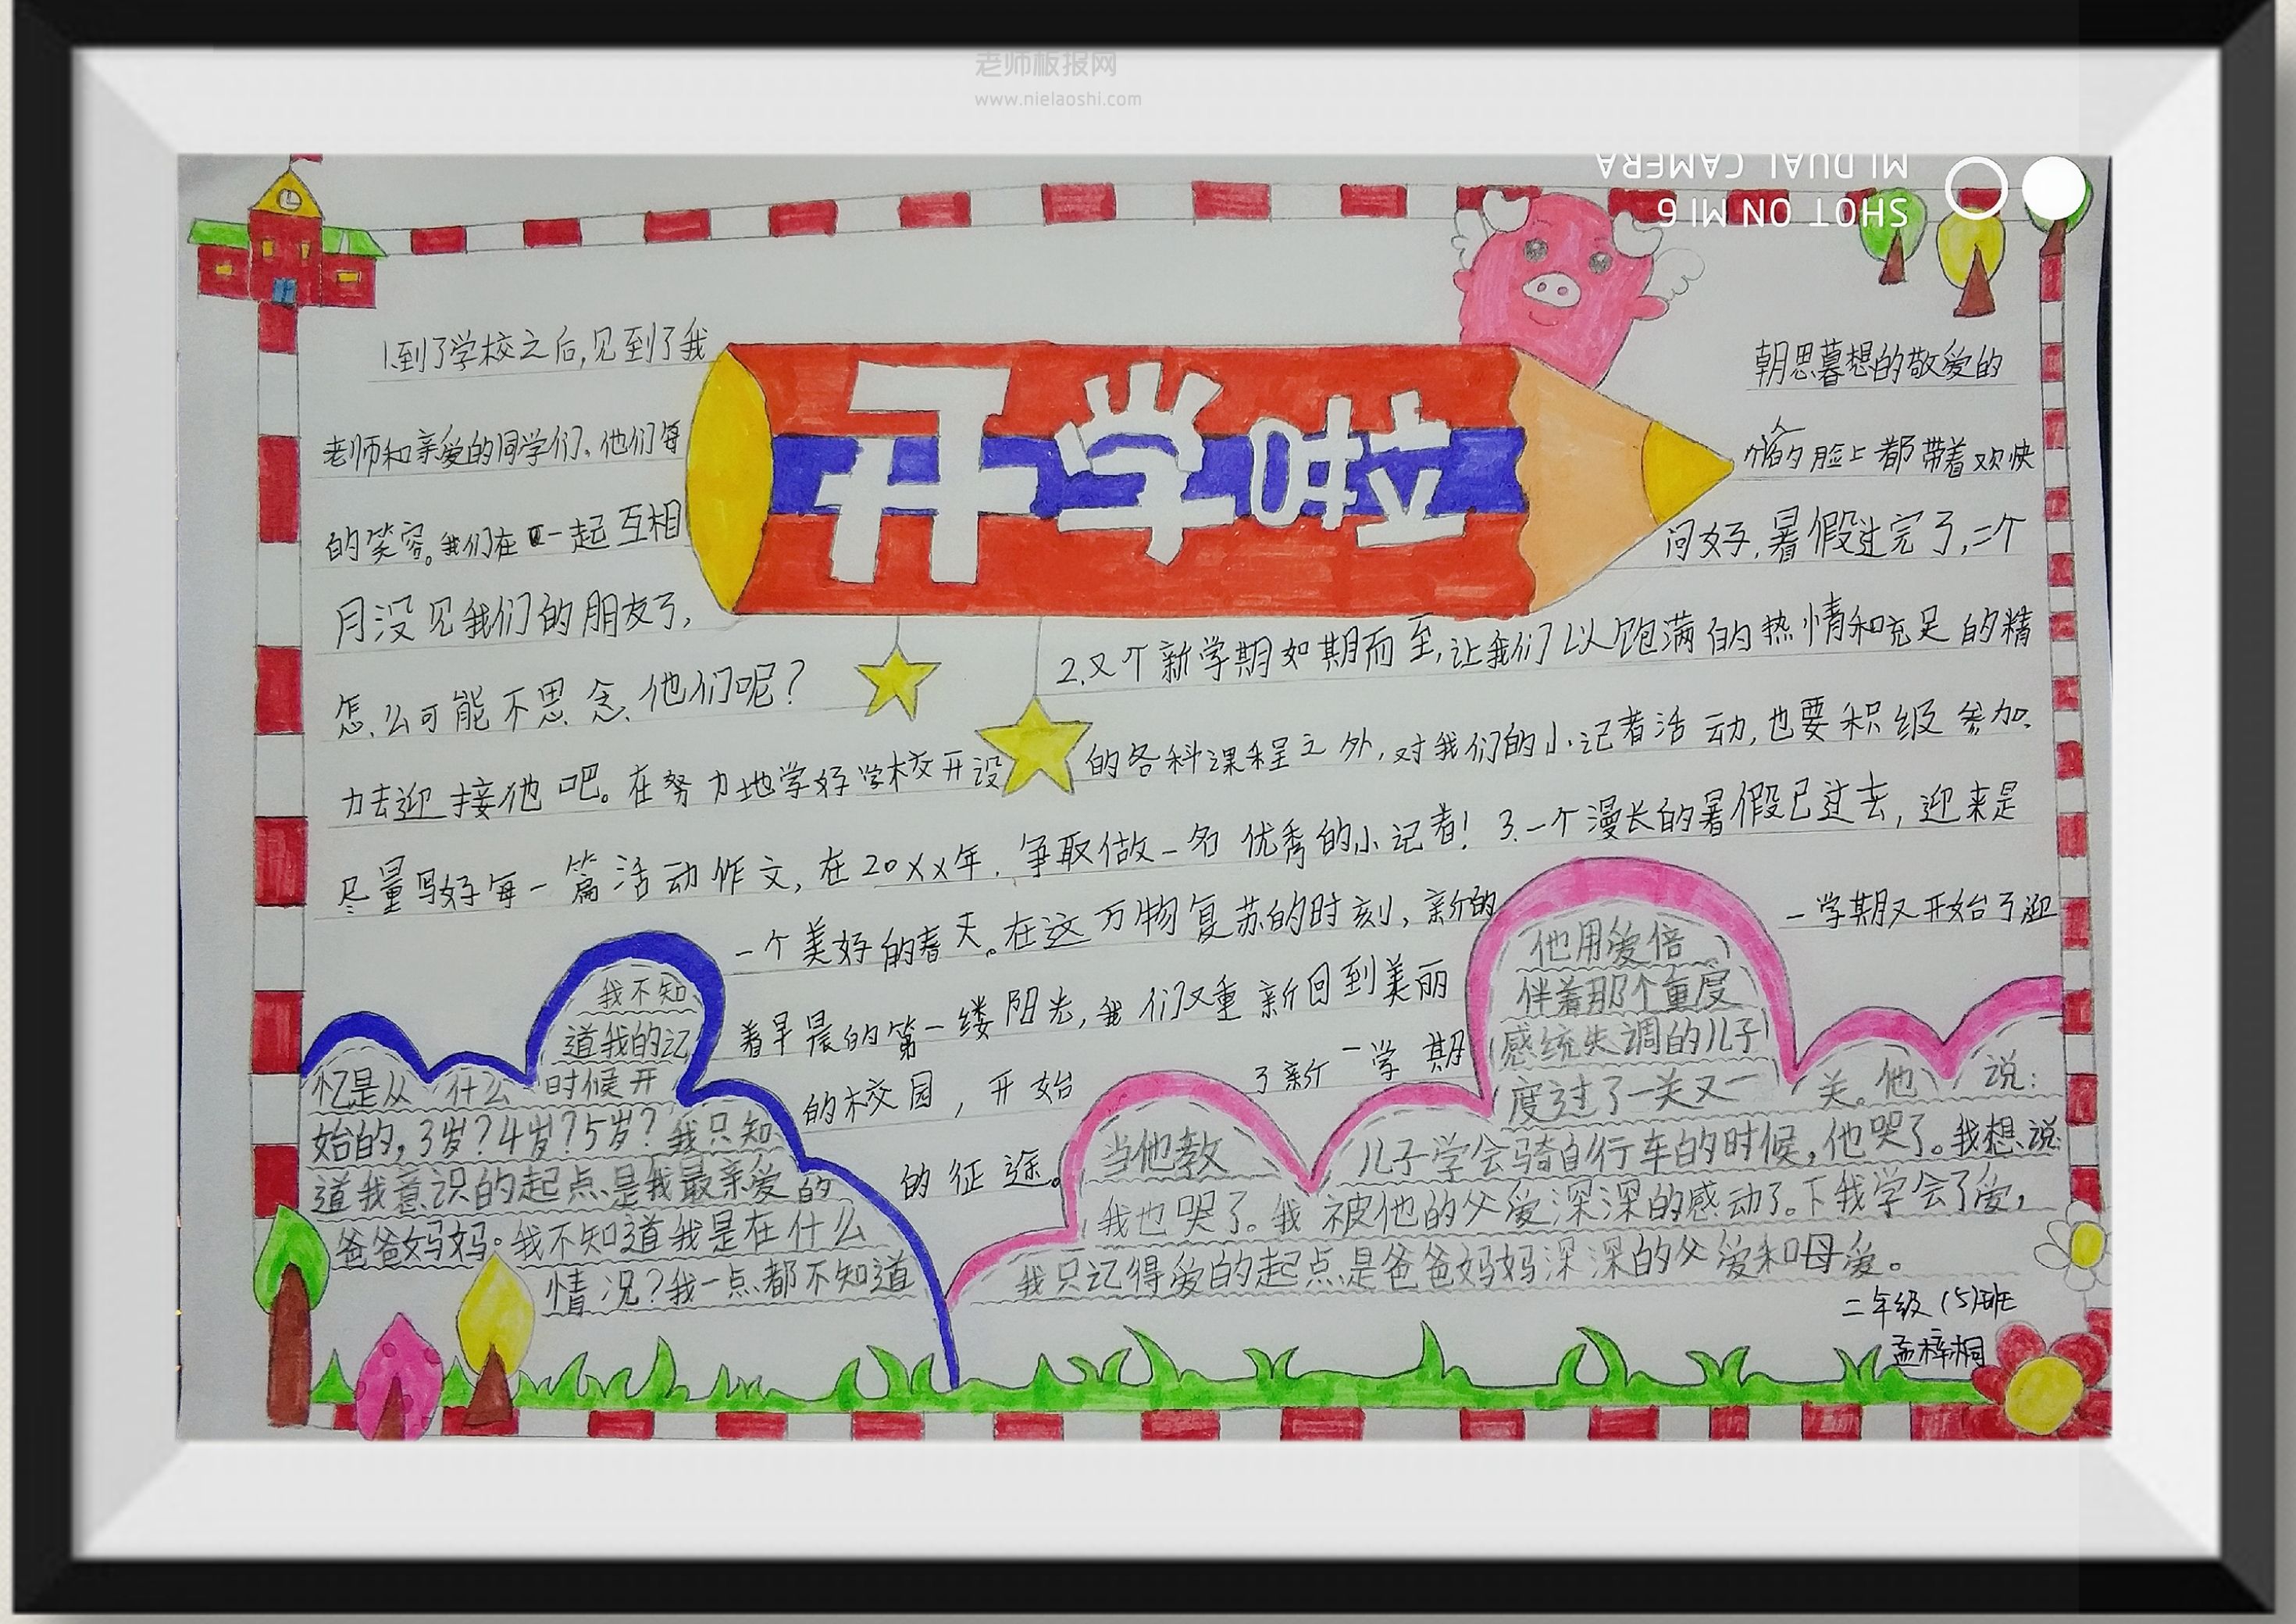 老师板报网
www.nielaoshi.com
SHOT ON MI 6
MI DUAL CAMERA
开学啦
1.到了学校之后,见到了我 朝思暮想的敬爱的
老师和亲爱的同学们、他们每 个人的脸上都带着欢快
的笑容。我们在一起互相 问好,暑假过完了,二个
月没见我们的朋友了,
怎么可能不思念他们呢?
2.又个新学期如期而至,让我们以饱满的热情和充足的精
力去迎接他吧。在努力地学好学校开设的各科课程之外,对我们的小记者活动,也要积级参加.
尽量写好每一篇活动作文,在20XX年.争取做一名优秀的小记者!3.一个漫长的暑假已过去,迎来是
一个美好的春天。在这万物复苏的时刻,新的 一学期又开始了迎
着早晨的第一缕阳光,我们又重新回到美丽
的校园,开始 了新一学期
的征途。
我不知
道我的记
忆是从什么时候开
始的,3岁?4岁?5岁?我只知
道我意识的起点是我最亲爱的
爸爸妈妈。我不知道我是在什么
情况?我一点都不知道
他用爱倍
伴着那个重度
感统失调的儿子
度过了一关又一关。他说:
当他教儿子学会骑自行车的时候,他哭了。我想说
我也哭了。我被他的父爱深深的感动了。下我学会了爱,
我只记得爱的起点是爸爸妈妈深深的父爱和母爱。
二年级(5)班
孟梓桐